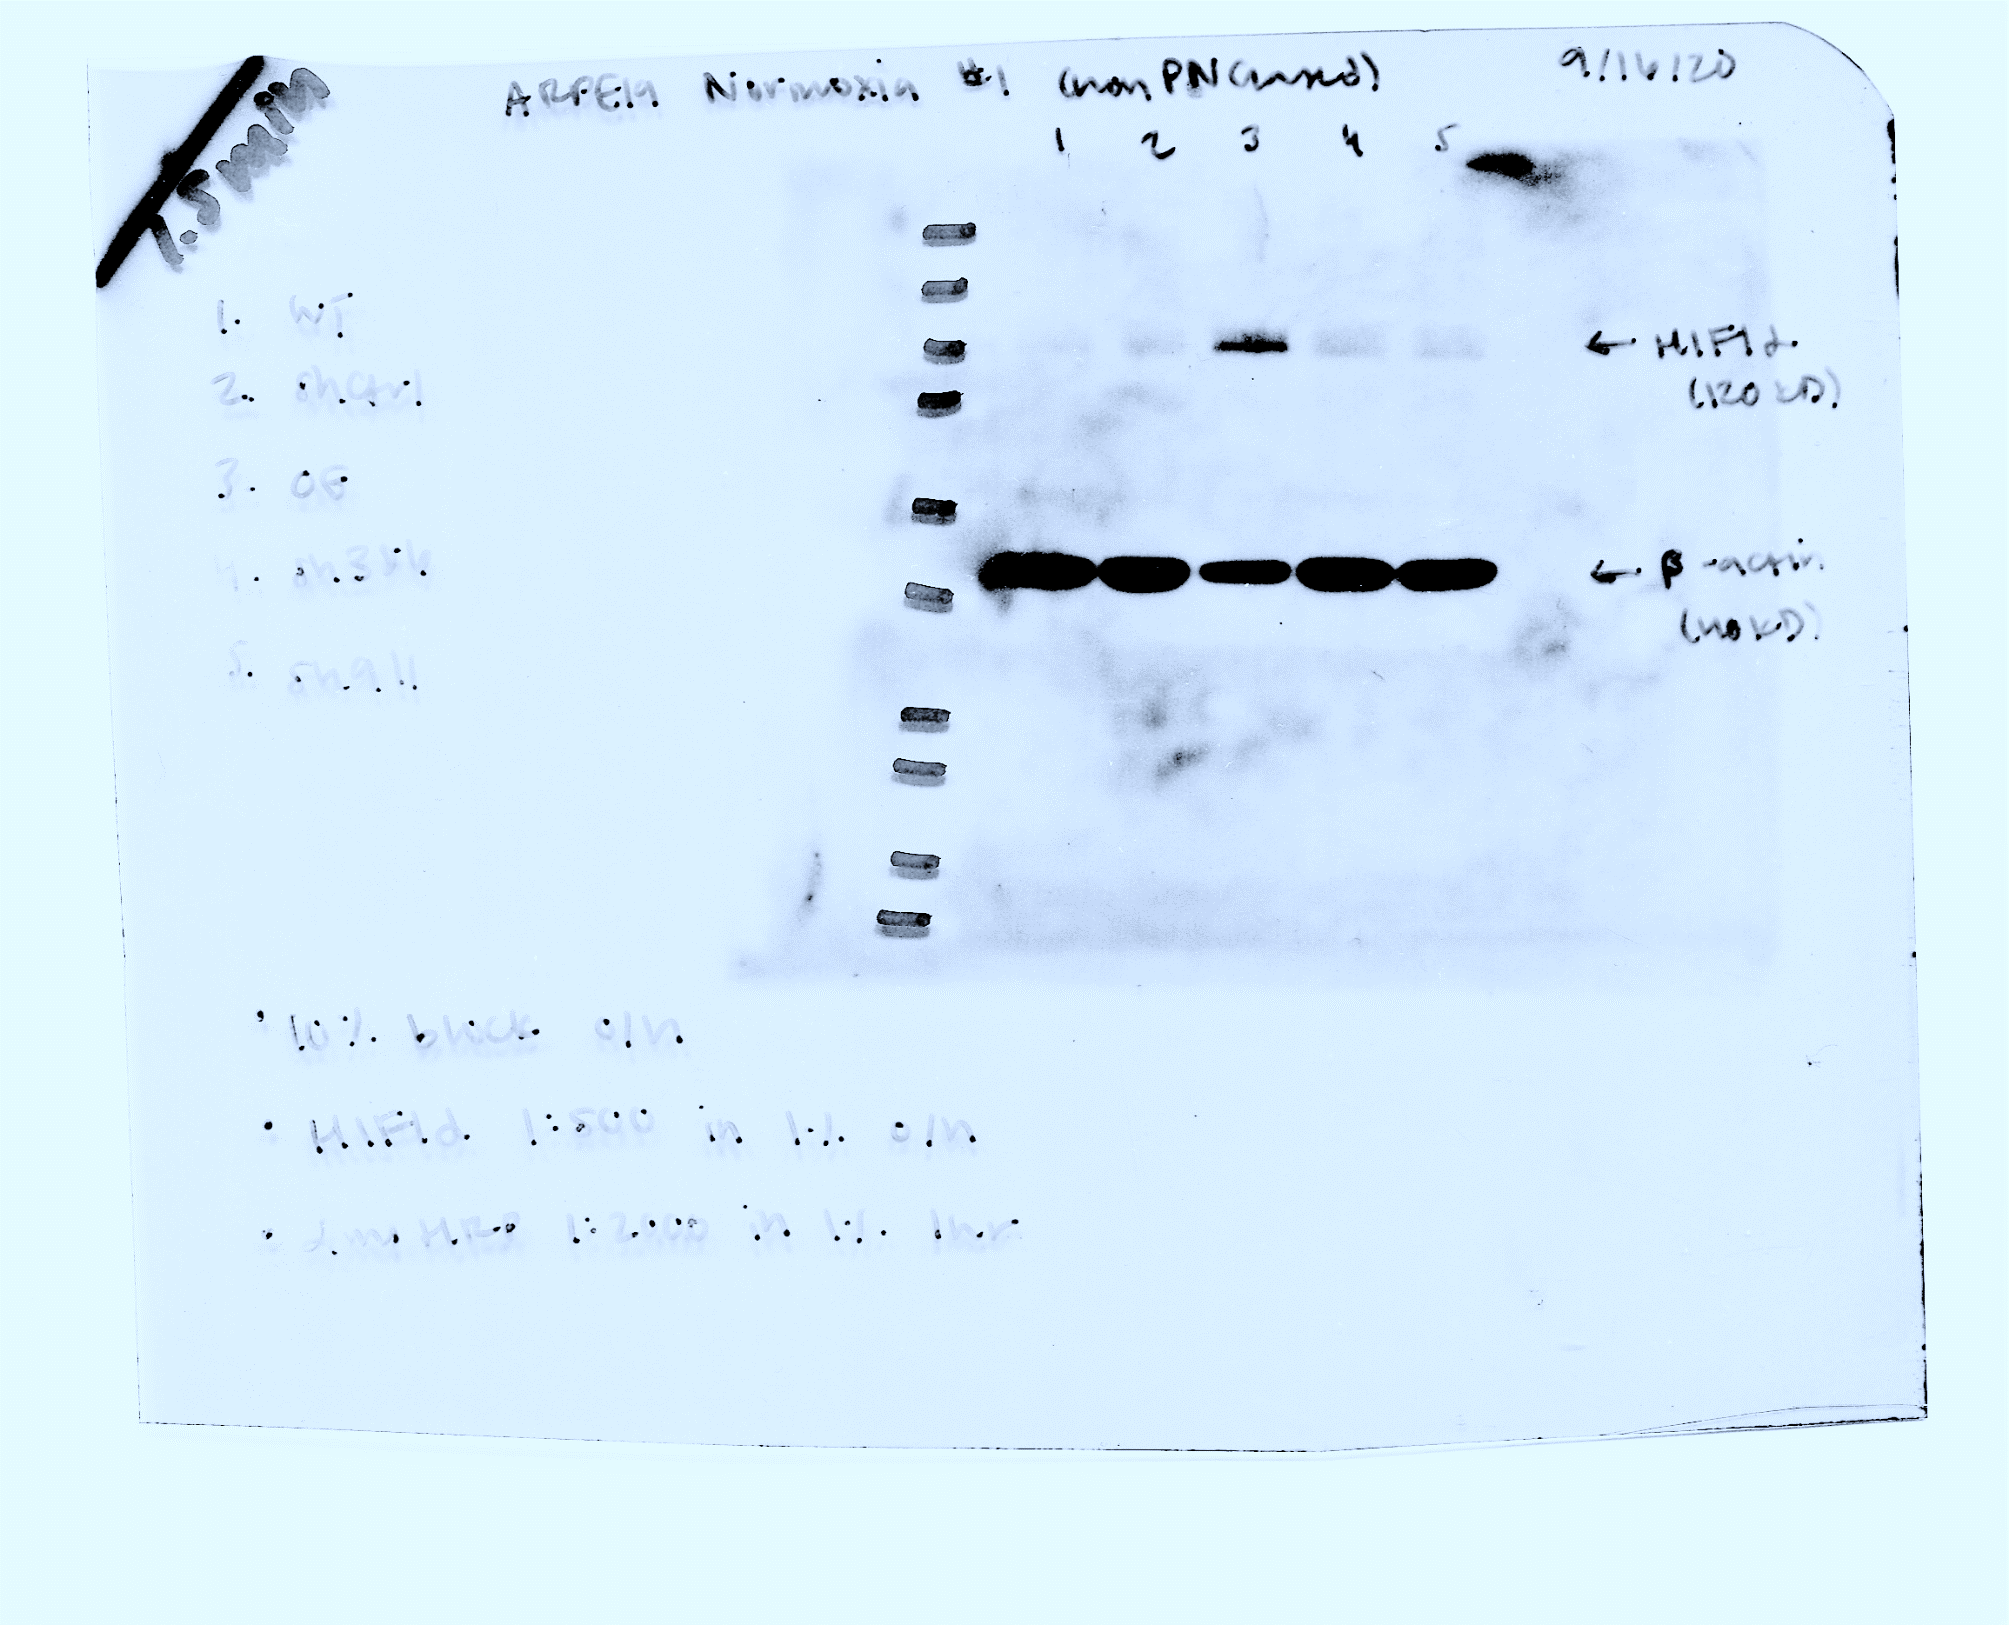 1.5 min
ARPE19 Normoxia #1 (non PNGased) 9/16/20
1 2 3 4 5
1. WT
2. shCtrl
3. OE
4. sh
5. sh911
← HIF1α
(120 kD)
← β-actin
(40 kD)
• 10% block o/n
• HIF1α 1:500 in 1% o/n
• αm HRP 1:2000 in 1% 1hr